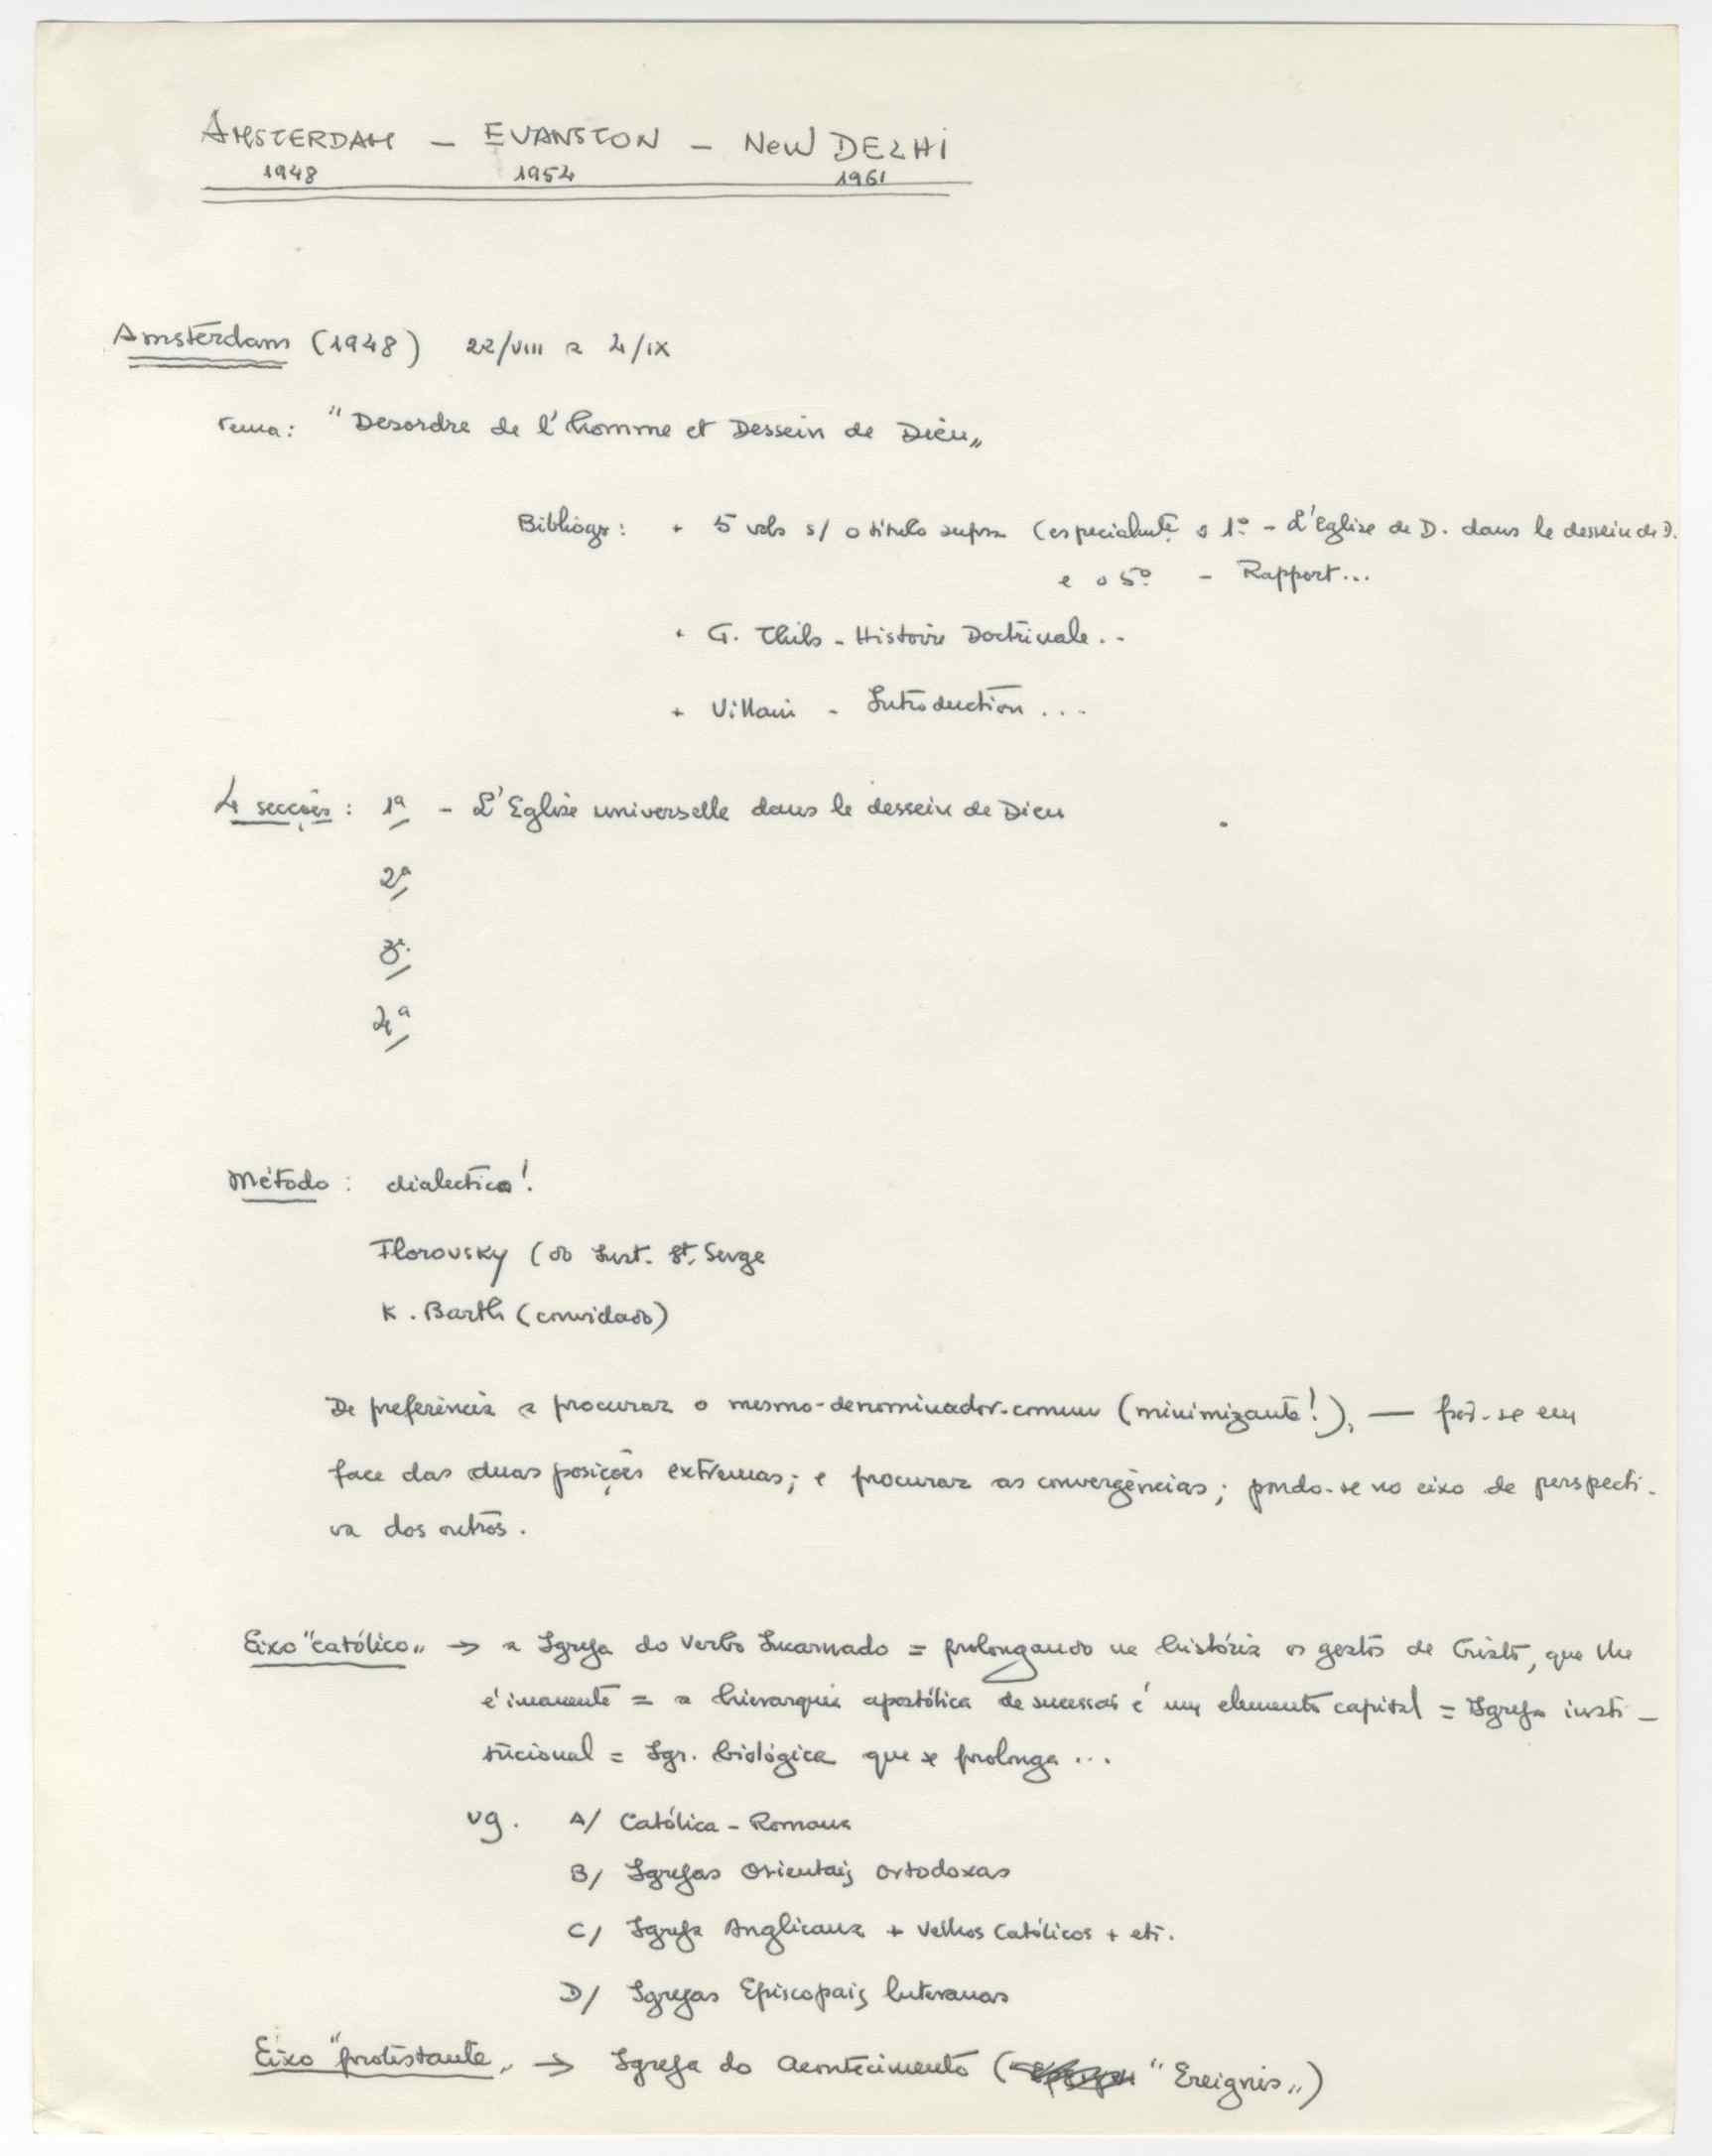 AMSTERDAM - EVANSTON - NEW DELHI
1948 1954 1961
Amsterdam (1948) 22/VIII a 4/IX
Tema: "Desordre de l'homme et Dessein de Dieu"
Bibliogr: + 5 vols s/ o título supra (especialmte. o 1º - L'Eglise de D. dans le dessein de D.
e o 5º - Rapport...
+ G. Thils - Histoire Doctrinale...
+ Villain - Introduction...
4 secções: 1ª - L'Eglise universelle dans le dessein de Dieu
2ª
3ª
4ª
Método: dialectico!
Florovsky (do Inst. St. Serge
K. Barth (convidado)
De preferência a procurar o mesmo-denominador-comum (minimizante!), — pôr-se em
face das duas posições extremas; e procurar as convergências; pondo-se no eixo de perspecti-
va dos outros.
Eixo "católico" → a Igreja do Verbo Incarnado = prolongando na história os gestos de Cristo, que lhe
é imanente = a hierarquia apostólica de sucessão é um elemento capital = Igreja insti-
tucional = Igr. biológica que se prolonga...
vg. A/ Católica - Romana
B/ Igrejas Orientais Ortodoxas
C/ Igreja Anglicana + Velhos Católicos + etc.
D/ Igrejas Episcopais luteranas
Eixo "protestante" → Igreja do Acontecimento ("Ereignis")